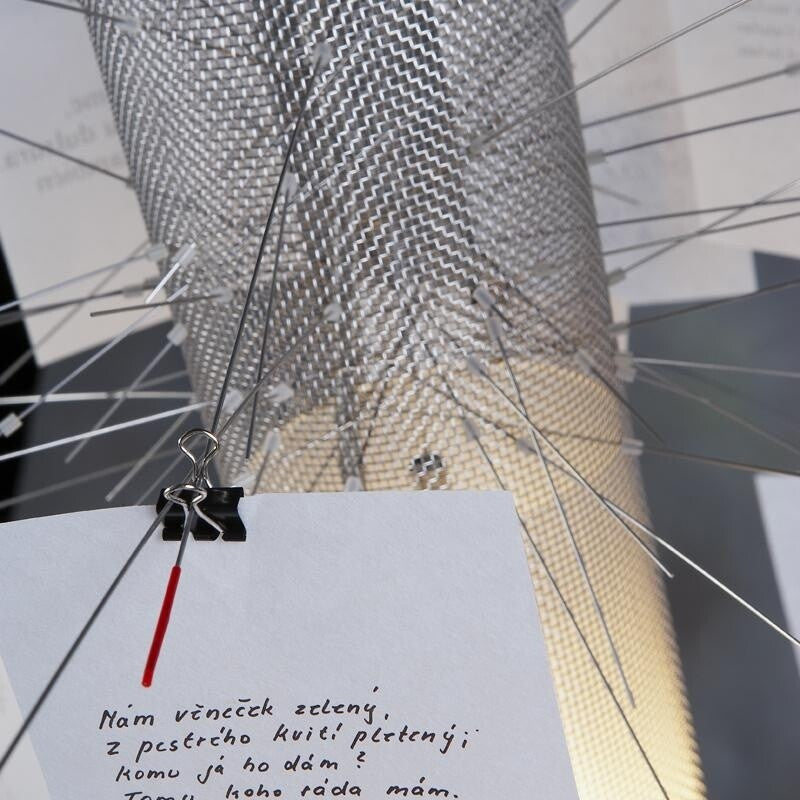 Mám věneček zelený,
z pestrého kvítí pletený;
komu já ho dám?
Tomu, koho ráda mám.